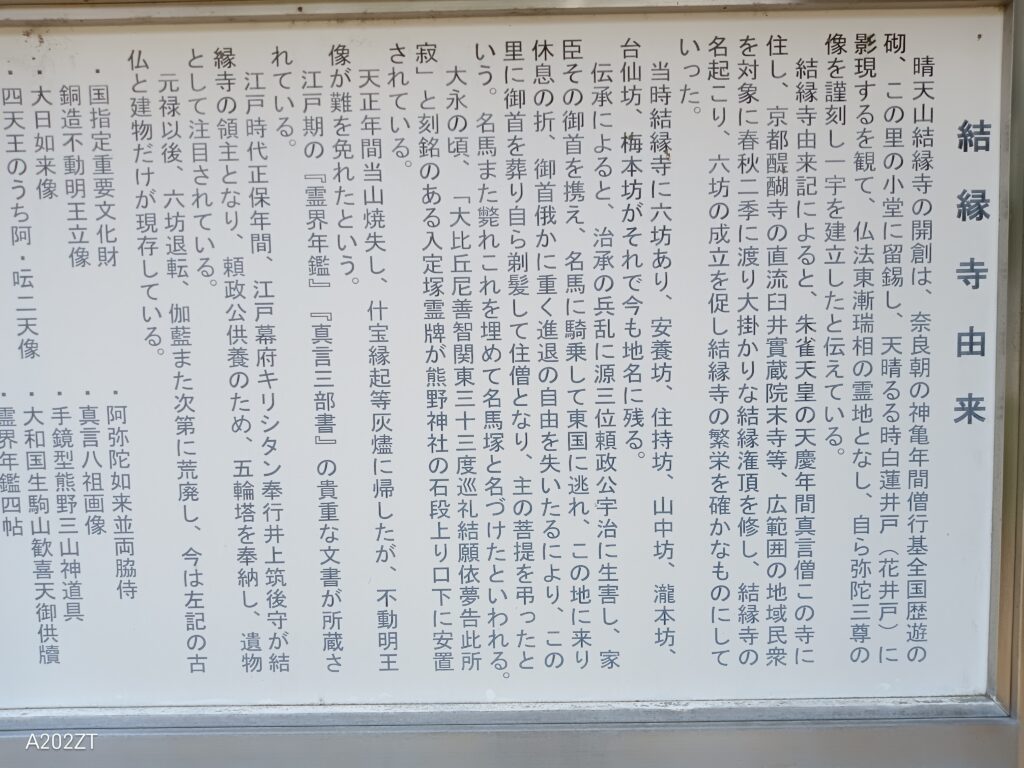 結縁寺由来
晴天山結縁寺の開創は、奈良朝の神亀年間僧行基全国歴遊の
砌、この里の小堂に留錫し、天晴るる時白蓮井戸（花井戸）に
影現するを観て、仏法東漸瑞相の霊地となし、自ら弥陀三尊の
像を謹刻し一宇を建立したと伝えている。
結縁寺由来記によると、朱雀天皇の天慶年間真言僧この寺に
住し、京都醍醐寺の直流臼井實蔵院末寺等、広範囲の地域民衆
を対象に春秋二季に渡り大掛かりな結縁潅頂を修し、結縁寺の
名起こり、六坊の成立を促し結縁寺の繁栄を確かなものにして
いった。
当時結縁寺に六坊あり、安養坊、住持坊、山中坊、瀧本坊、
台仙坊、梅本坊がそれで今も地名に残る。
伝承によると、治承の兵乱に源三位頼政公宇治に生害し、家
臣その御首を携え、名馬に騎乗して東国に逃れ、この地に来り
休息の折、御首俄かに重く進退の自由を失いたるにより、この
里に御首を葬り自ら剃髪して住僧となり、主の菩提を弔ったと
いう。名馬また斃れこれを埋めて名馬塚と名づけたといわれる。
大永の頃、「大比丘尼善智関東三十三度巡礼結願依夢告此所
寂」と刻銘のある入定塚霊牌が熊野神社の石段上り口下に安置
されている。
天正年間当山焼失し、什宝縁起等灰燼に帰したが、不動明王
像が難を免れたという。
江戸期の『霊界年鑑』『真言三部書』の貴重な文書が所蔵さ
れている。
江戸時代正保年間、江戸幕府キリシタン奉行井上筑後守が結
縁寺の領主となり、頼政公供養のため、五輪塔を奉納し、遺物
として注目されている。
元禄以後、六坊退転、伽藍また次第に荒廃し、今は左記の古
仏と建物だけが現存している。
・国指定重要文化財
銅造不動明王立像
・大日如来像
・四天王のうち阿・呍二天像
・阿弥陀如来並両脇侍
・真言八祖画像
・手鏡型熊野三山神道具
・大和国生駒山歓喜天御供牘
・霊界年鑑四帖
A202ZT